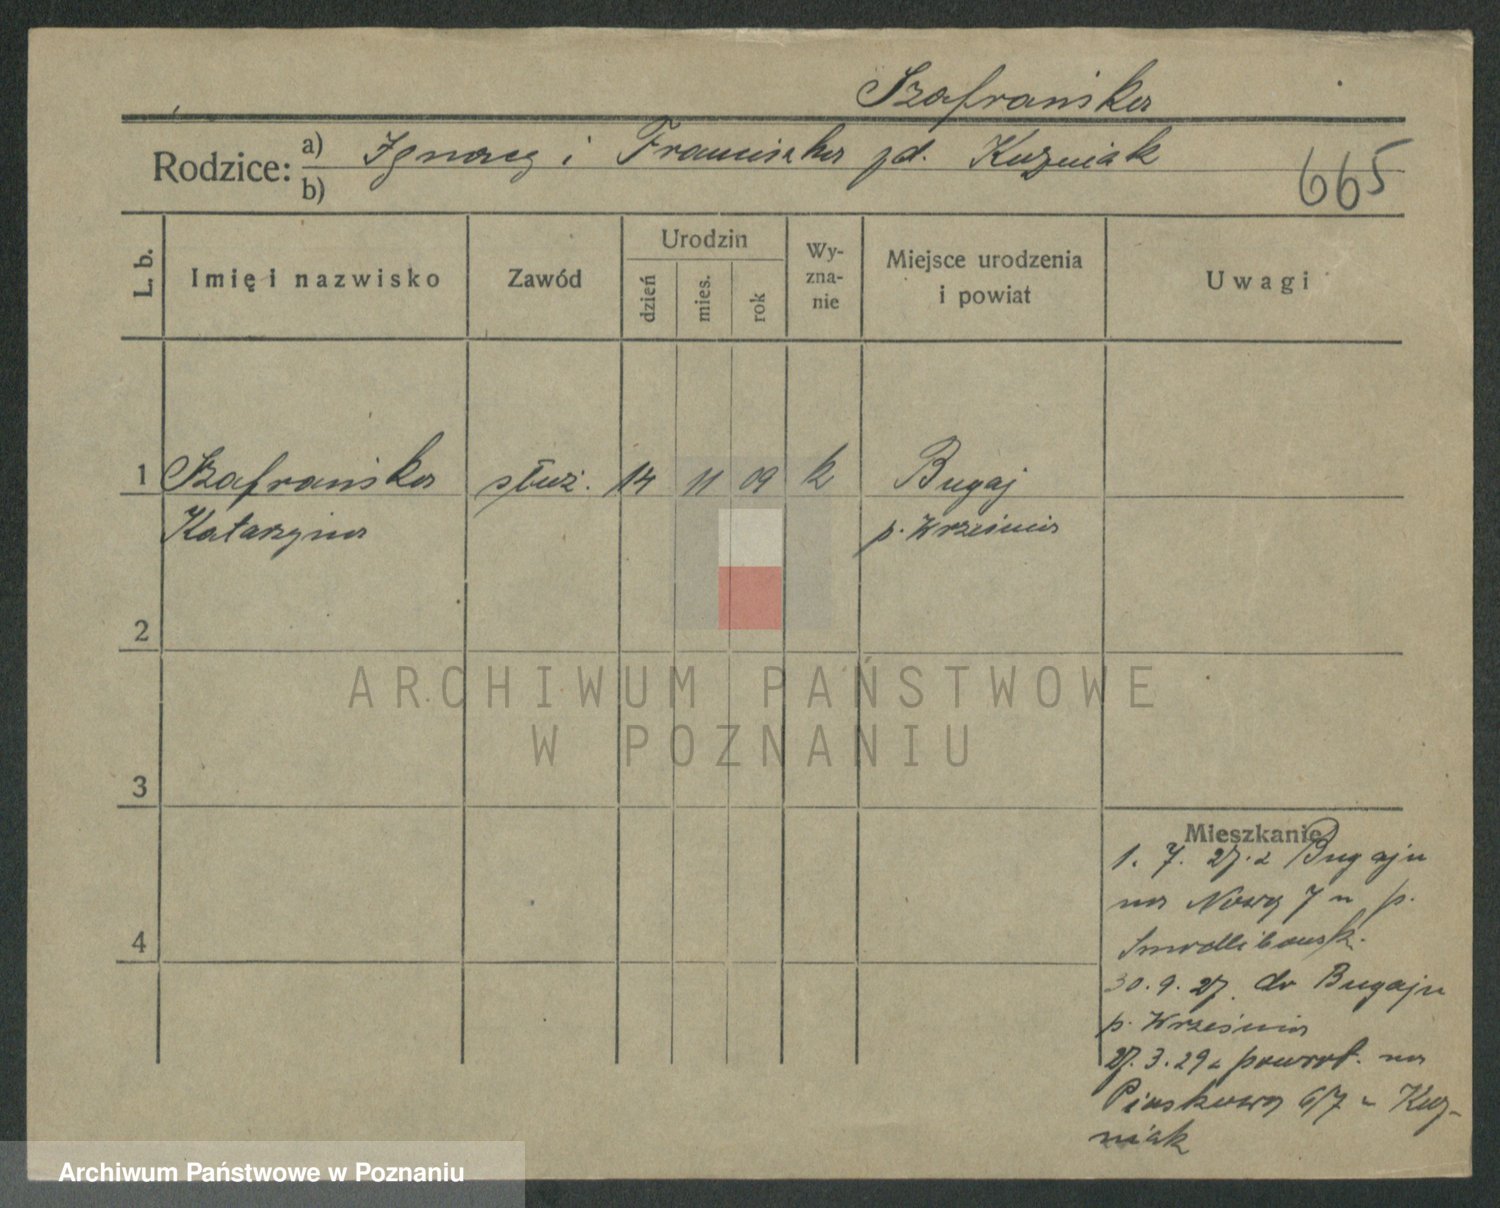 Szafrańska
Rodzice: a) Ignacy i Franciszka zd. Kuźniak
b)
665
L. b. Imię i nazwisko Zawód Urodzin dzień mies. rok Wy-zna-nie Miejsce urodzenia i powiat Uwagi
1 Szafrańska służ. 14 11 09 k Bugaj
Katarzyna p. Września
2
3
4
Mieszkanie
1. 7. 27. z Bugaju
na Nową 7 u p.
30. 9. 27. do Bugaju
p. Września
27. 3. 29 z powrot. na
Piaskową 6/7 u Kuź-
niak
ARCHIWUM PAŃSTWOWE
W POZNANIU
Archiwum Państwowe w Poznaniu